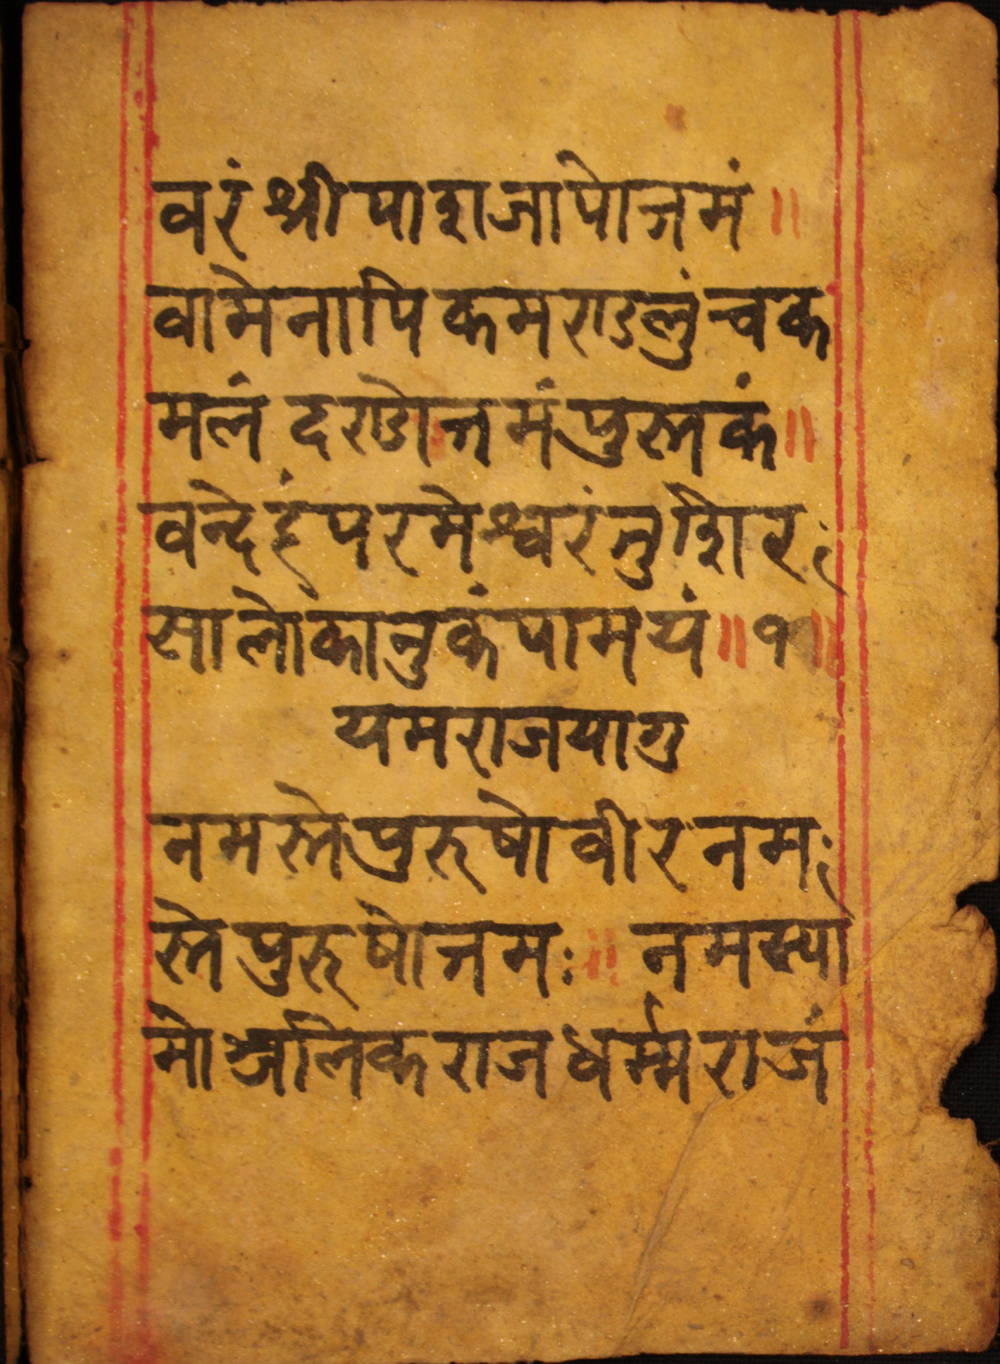 वरं श्री पाश जापोत्तमं ॥
वामेनापि कमण्डलुं च क
मलं दण्डोत्तमं पुस्तकं ॥
वन्देहं परमेश्वरं नु शिर
सा लोकानुकंपामयं ॥ १ ॥
यमराजयागु
नमस्ते पुरुषो वीर नम
स्ते पुरुषोत्तमः ॥ नमस्या
मोञ्जलिक राज धर्म्मराजं